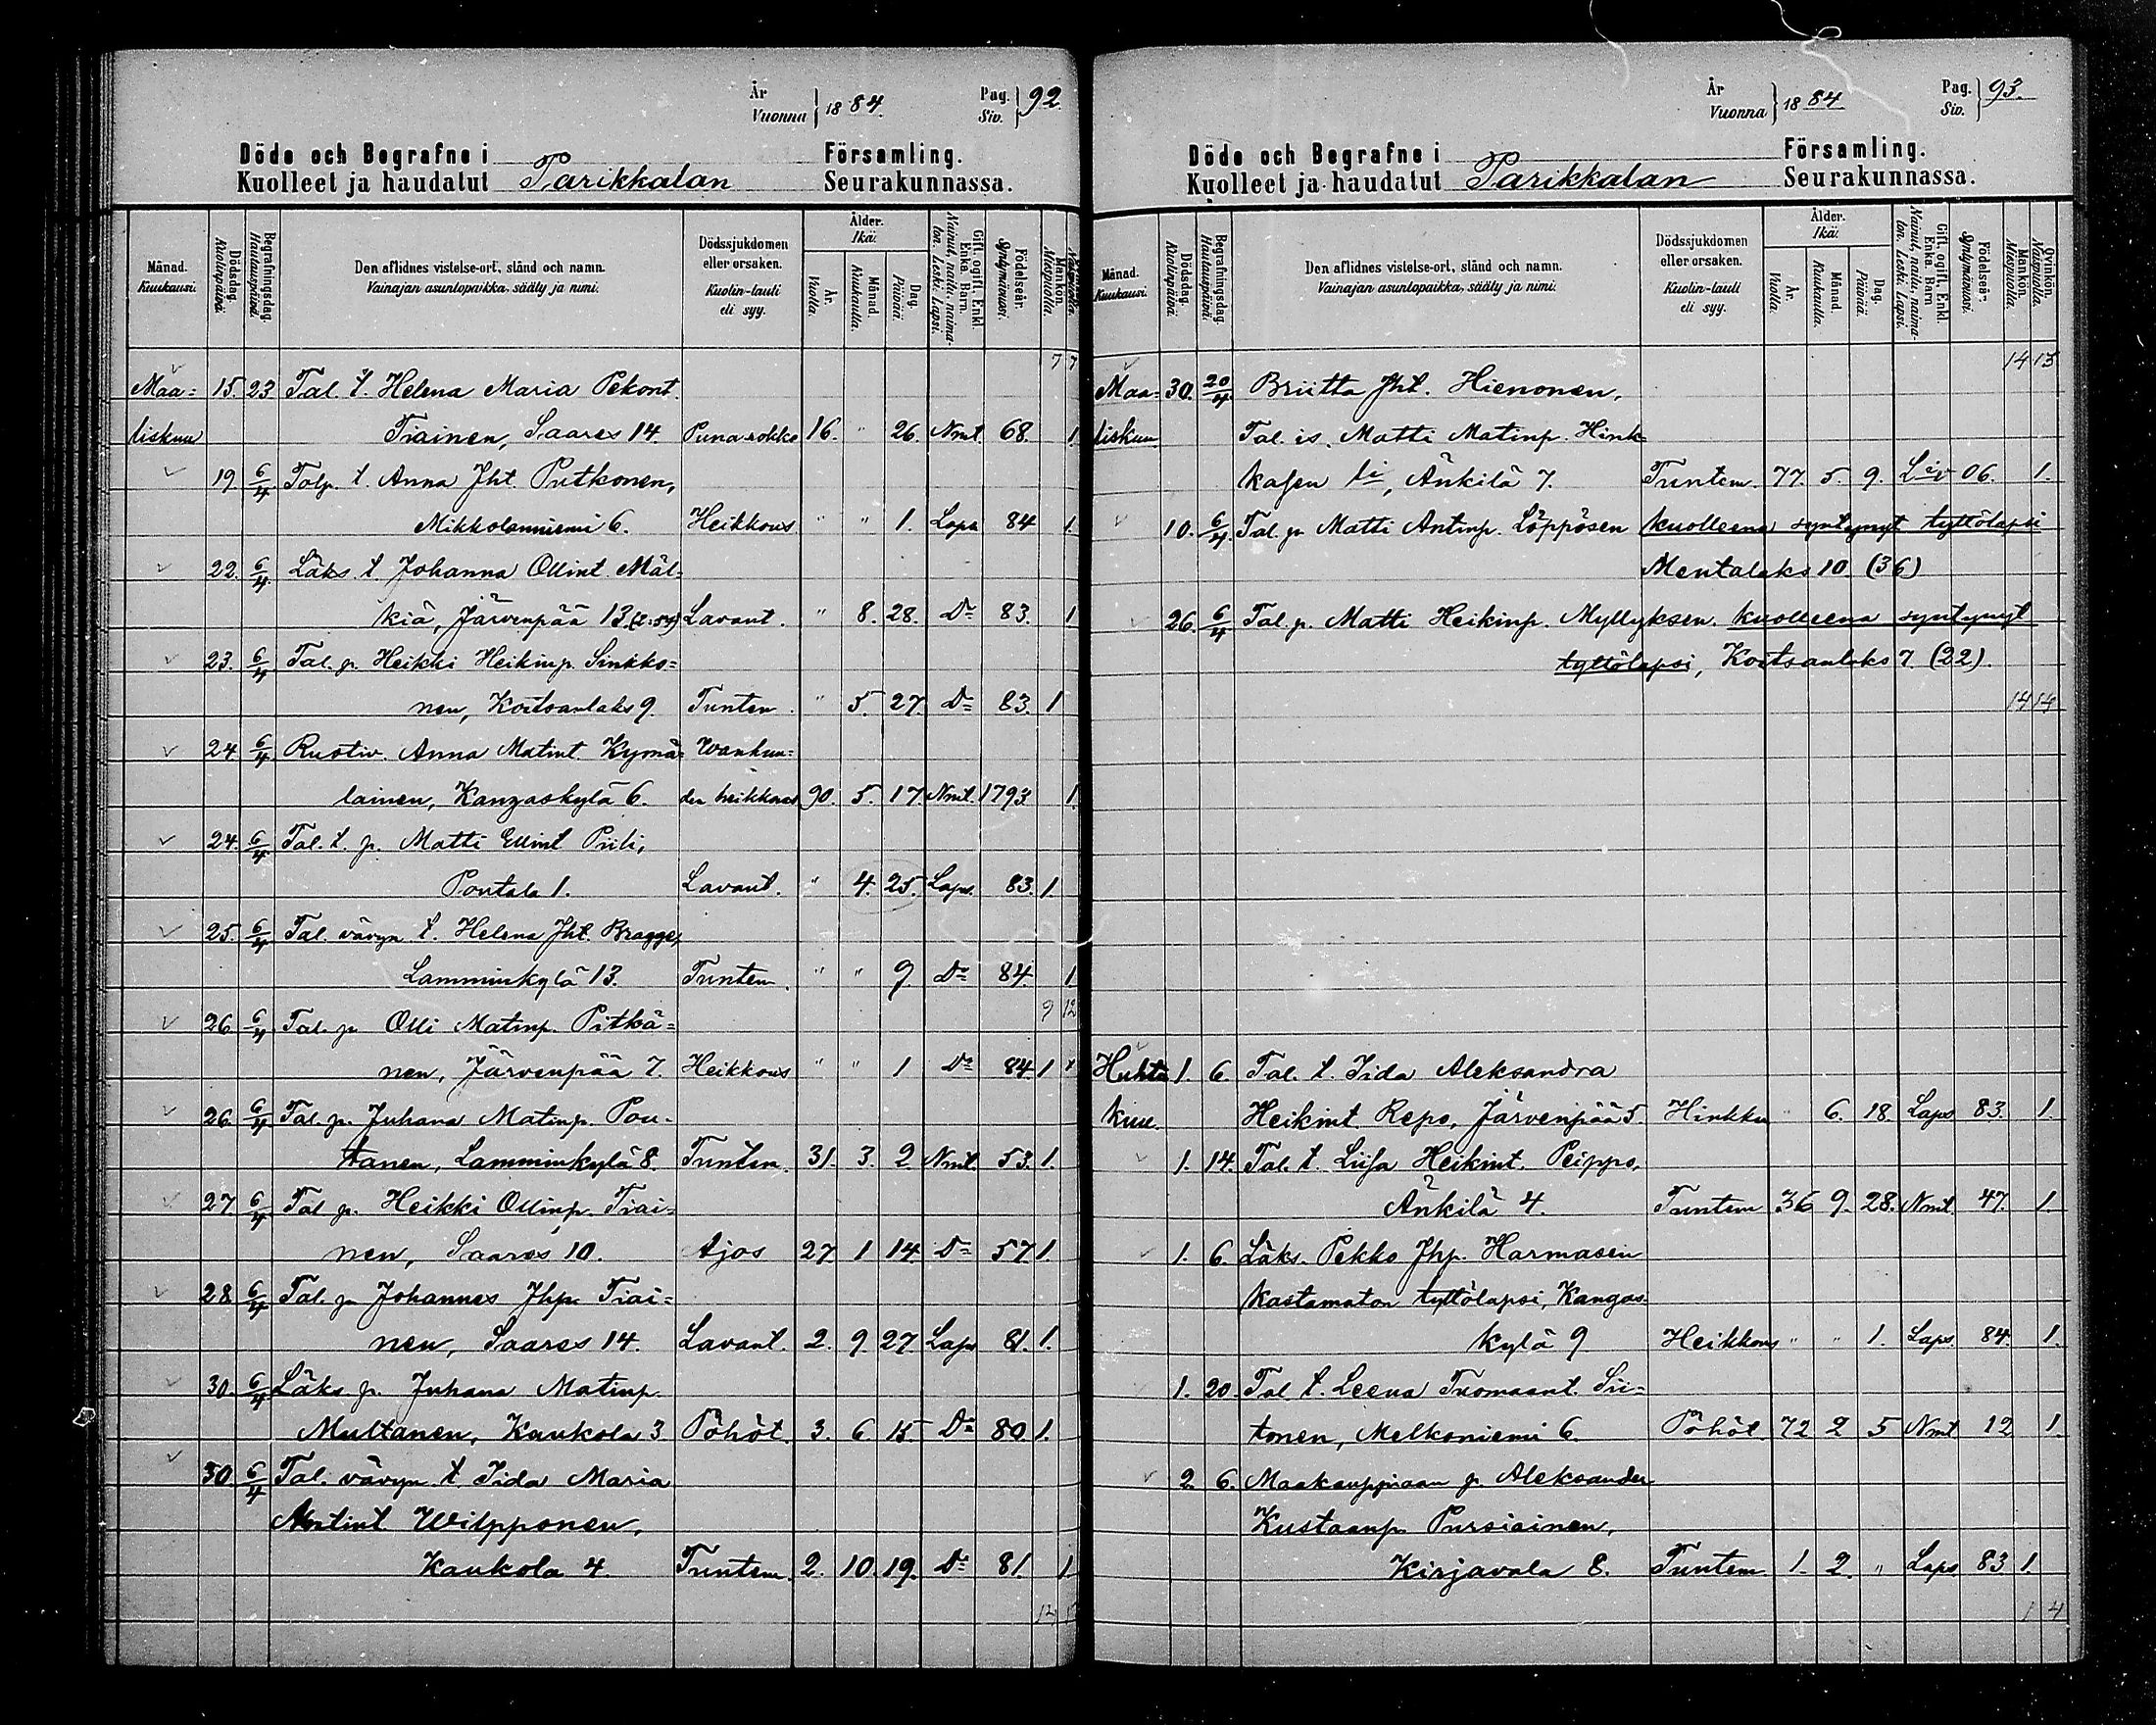 År
Vuonna 1884.
Pag.
Siv. 92.
Döde och Begrafne i Församling.
Kuolleet ja haudatut Parikkalan Seurakunnassa.
Månad. Kuukausi.
Dödsdag. Kuolinpäivä.
Begrafningsdag. Hautauspäivä.
Den aflidnes vistelse-ort, stånd och namn.
Vainajan asuntopaikka, sääty ja nimi.
Dödssjukdomen eller orsaken.
Kuolin-tauti eli syy.
Ålder. Ikä.
År. Vuotta.
Månad. Kuukautta.
Dag. Päivää.
Gift, ogift, Enkl. Enka. Barn.
Nainut, naitu, naimaton. Leski. Lapsi.
Födelseår. Syntymävuosi.
Mankön. Miespuolia.
7 7
Maa= 15. 23 Tal. t. Helena Maria Pekont.
liskuu Tiainen, Saares 14 Punarokko 16. " 26. Nmt. 68. 1.
19. 6/4 Talp. t. Anna Jht. Putkonen,
Mikkolanniemi 6. Heikkous " " 1. Laps 84 1.
22. 6/4 Läks. t. Johanna Ollint. Mäl=
kiä, Järvenpää 13. Lavant. " 8. 28. Do 83. 1
23. 6/4 Tal. p. Heikki Heikinp. Sinkko=
nen, Koitsanlaks 9. Tuntem. " 5. 27. Do 83. 1
24. 6/4 Rustiv. Anna Matint. Kymä= Wanhuu=
lainen, Kangaskylä 6. den heikkous 90. 5. 17. Nmt. 1793 1.
24. 6/4 Tal. t. p. Matti Ellint Piili,
Poutala 1. Lavant. " 4. 25. Laps. 83. 1.
25. 6/4 Tal. vävyn t. Helena Jht. Bragge,
Lamminkylä 13. Tuntem. " " 9. Do 84. 1
9 12
26. 6/4 Tal. p. Olli Matinp. Pitkä=
nen, Järvenpää 7. Heikkous " " 1 Do 84 1
26. 6/4 Tal. p. Juhana Matinp. Pou=
tanen, Lamminkylä 8. Tuntem. 31. 3. 2 Nmt. 53. 1.
27. 6/4 Tal p. Heikki Ollinp. Tiai=
nen, Saares 10. Ajos 27 1 14. Do 57 1.
28. 6/4 Tal. p. Johannes Jhp. Tiai=
nen, Saares 14. Lavant. 2. 9 27 Laps 81. 1.
30. 6/4 Läks p. Juhana Matinp.
Multanen, Kaukola 3. Pöhöt. 3. 6. 15 Do 80. 1.
30. 6/4 Tal. vävyn t. Iida Maria
Antint. Wilpponen,
Kaukola 4. Tuntem. 2. 10. 19. Do 81. 1
År
Vuonna 1884
Pag.
Siv. 93.
Döde och Begrafne i Församling.
Kuolleet ja haudatut Parikkalan Seurakunnassa.
Månad. Kuukausi.
Dödsdag. Kuolinpäivä.
Begrafningsdag. Hautauspäivä.
Den aflidnes vistelse-ort, stånd och namn.
Vainajan asuntopaikka, sääty ja nimi.
Dödssjukdomen eller orsaken.
Kuolin-tauti eli syy.
Ålder. Ikä.
År. Vuotta.
Månad. Kuukautta.
Dag. Päivää.
Gift, ogift, Enkl. Enka. Barn.
Nainut, naitu, naimaton. Leski. Lapsi.
Födelseår. Syntymävuosi.
Mankön. Miespuolia.
Qvinkön. Vaispuolia.
14 13
Maa= 30. 20/4 Briitta Jht. Hienonen,
liskuu Tal. is. Matti Matinp. Hink=
kasen li, Änkilä 7. Tuntem. 77. 5. 9. 06. 1.
10. 6/4 Tal. p Matti Antinp. Löppösen kuolleena syntynyt tyttölapsi
Mentalaks 10. (36)
26. 6/4 Tal. p. Matti Heikinp. Myllyksen. kuolleena syntynyt
tyttölapsi, Koitsanlaks 7 (22).
14 14
Huhti 1. 6. Tal. t. Iida Aleksandra
kuu. Heikint. Repo, Järvenpää 5. Hinkku 6. 18. Laps 83. 1.
1. 14. Tal. t. Liisa Heikint. Peippo,
Änkilä 4. Tuntem 36 9. 28. Nmt. 47. 1.
1. 6. Läks. Pekko Jhp. Harmasen
kastamaton tyttölapsi, Kangas=
kylä 9 Heikkous " " 1. Laps. 84. 1.
1. 20. Tal t. Leena Tuomaant. Sii=
tonen, Melkoniemi 6. Pöhöt. 72 2 5 Nmt 12 1.
2. 6. Maakauppiaan p. Aleksander
Kustaanp. Pursiainen,
Kirjavala 8. Tuntem. 1. 2. " Laps 83 1.
1 4